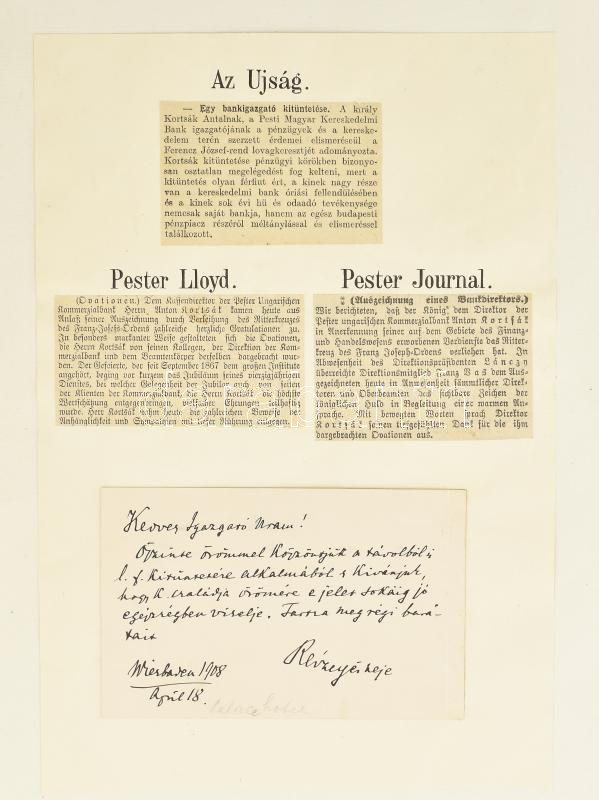 Az Ujság.
— Egy bankigazgató kitüntetése. A király
Kortsák Antalnak, a Pesti Magyar Kereskedelmi
Bank igazgatójának a pénzügyek és a kereske-
delem terén szerzett érdemei elismeréseül a
Ferencz József-rend lovagkeresztjét adományozta.
Kortsák kitüntetése pénzügyi körökben bizonyo-
san osztatlan megelégedést fog kelteni, mert a
kitüntetés olyan férfiut ért, a kinek nagy része
van a kereskedelmi bank óriási fellendülésében
és a kinek sok évi hü és odaadó tevékenysége
nemcsak saját bankja, hanem az egész budapesti
pénzpiacz részéről méltánylással és elismeréssel
találkozott.
Pester Lloyd.
(Ovationen.) Dem Kassendirektor der Pester Ungarischen
Kommerzialbank Herrn Anton Kortsák kamen heute aus
Anlaß seiner Auszeichnung durch Verleihung des Ritterkreuzes
des Franz-Josefs-Ordens zahlreiche herzliche Gratulationen zu.
In besonders markanter Weise gestalteten sich die Ovationen,
die Herrn Kortsák von seinen Kollegen, der Direktion der Kom-
merzialbank und dem Beamtenkörper derselben dargebracht wur-
den. Der Gefeierte, der seit September 1867 dem großen Institute
angehört, beging vor kurzem das Jubiläum seines vierzigjährigen
Dienstes, bei welcher Gelegenheit der Jubilar auch von seiten
der Klienten der Kommerzialbank, die Herrn Kortsák die höchste
Wertschätzung entgegenbringen, vielfacher Ehrungen teilhaftig
wurde. Herr Kortsák nahm heute die zahlreichen Beweise
Anhänglichkeit und Sympathien mit tiefer Rührung entgegen.
Pester Journal.
(Auszeichnung eines Bankdirektors.)
Wir berichteten, daß der König dem Direktor der
Pester ungarischen Kommerzialbank Anton Kortsák
in Anerkennung seiner auf dem Gebiete des Finanz-
und Handelswesens erworbenen Verdienste das Ritter-
kreuz des Franz Joseph-Ordens verliehen hat. In
Abwesenheit des Direktionspräsidenten Lánczy
überreichte Direktionsmitglied Franz Vas dem Aus-
gezeichneten heute in Anwesenheit sämmtlicher Direk-
toren und Oberbeamten das sichtbare Zeichen der
königlichen Huld in Begleitung einer warmen An-
sprache. Mit bewegten Worten sprach Direktor
Kortsák seinen tiefgefühlten Dank für die ihm
dargebrachten Ovationen aus.
Kedves Igazgató Uram!
Őszinte örömmel köszöntjük a távolból is
l. f. kitüntetésére alkalmából s kivánjuk,
hogy k. családja örömére e jelet sokáig jó
egészségben viselje. Tartsa meg régi bará-
tait
Wiesbaden 1908
April 18.